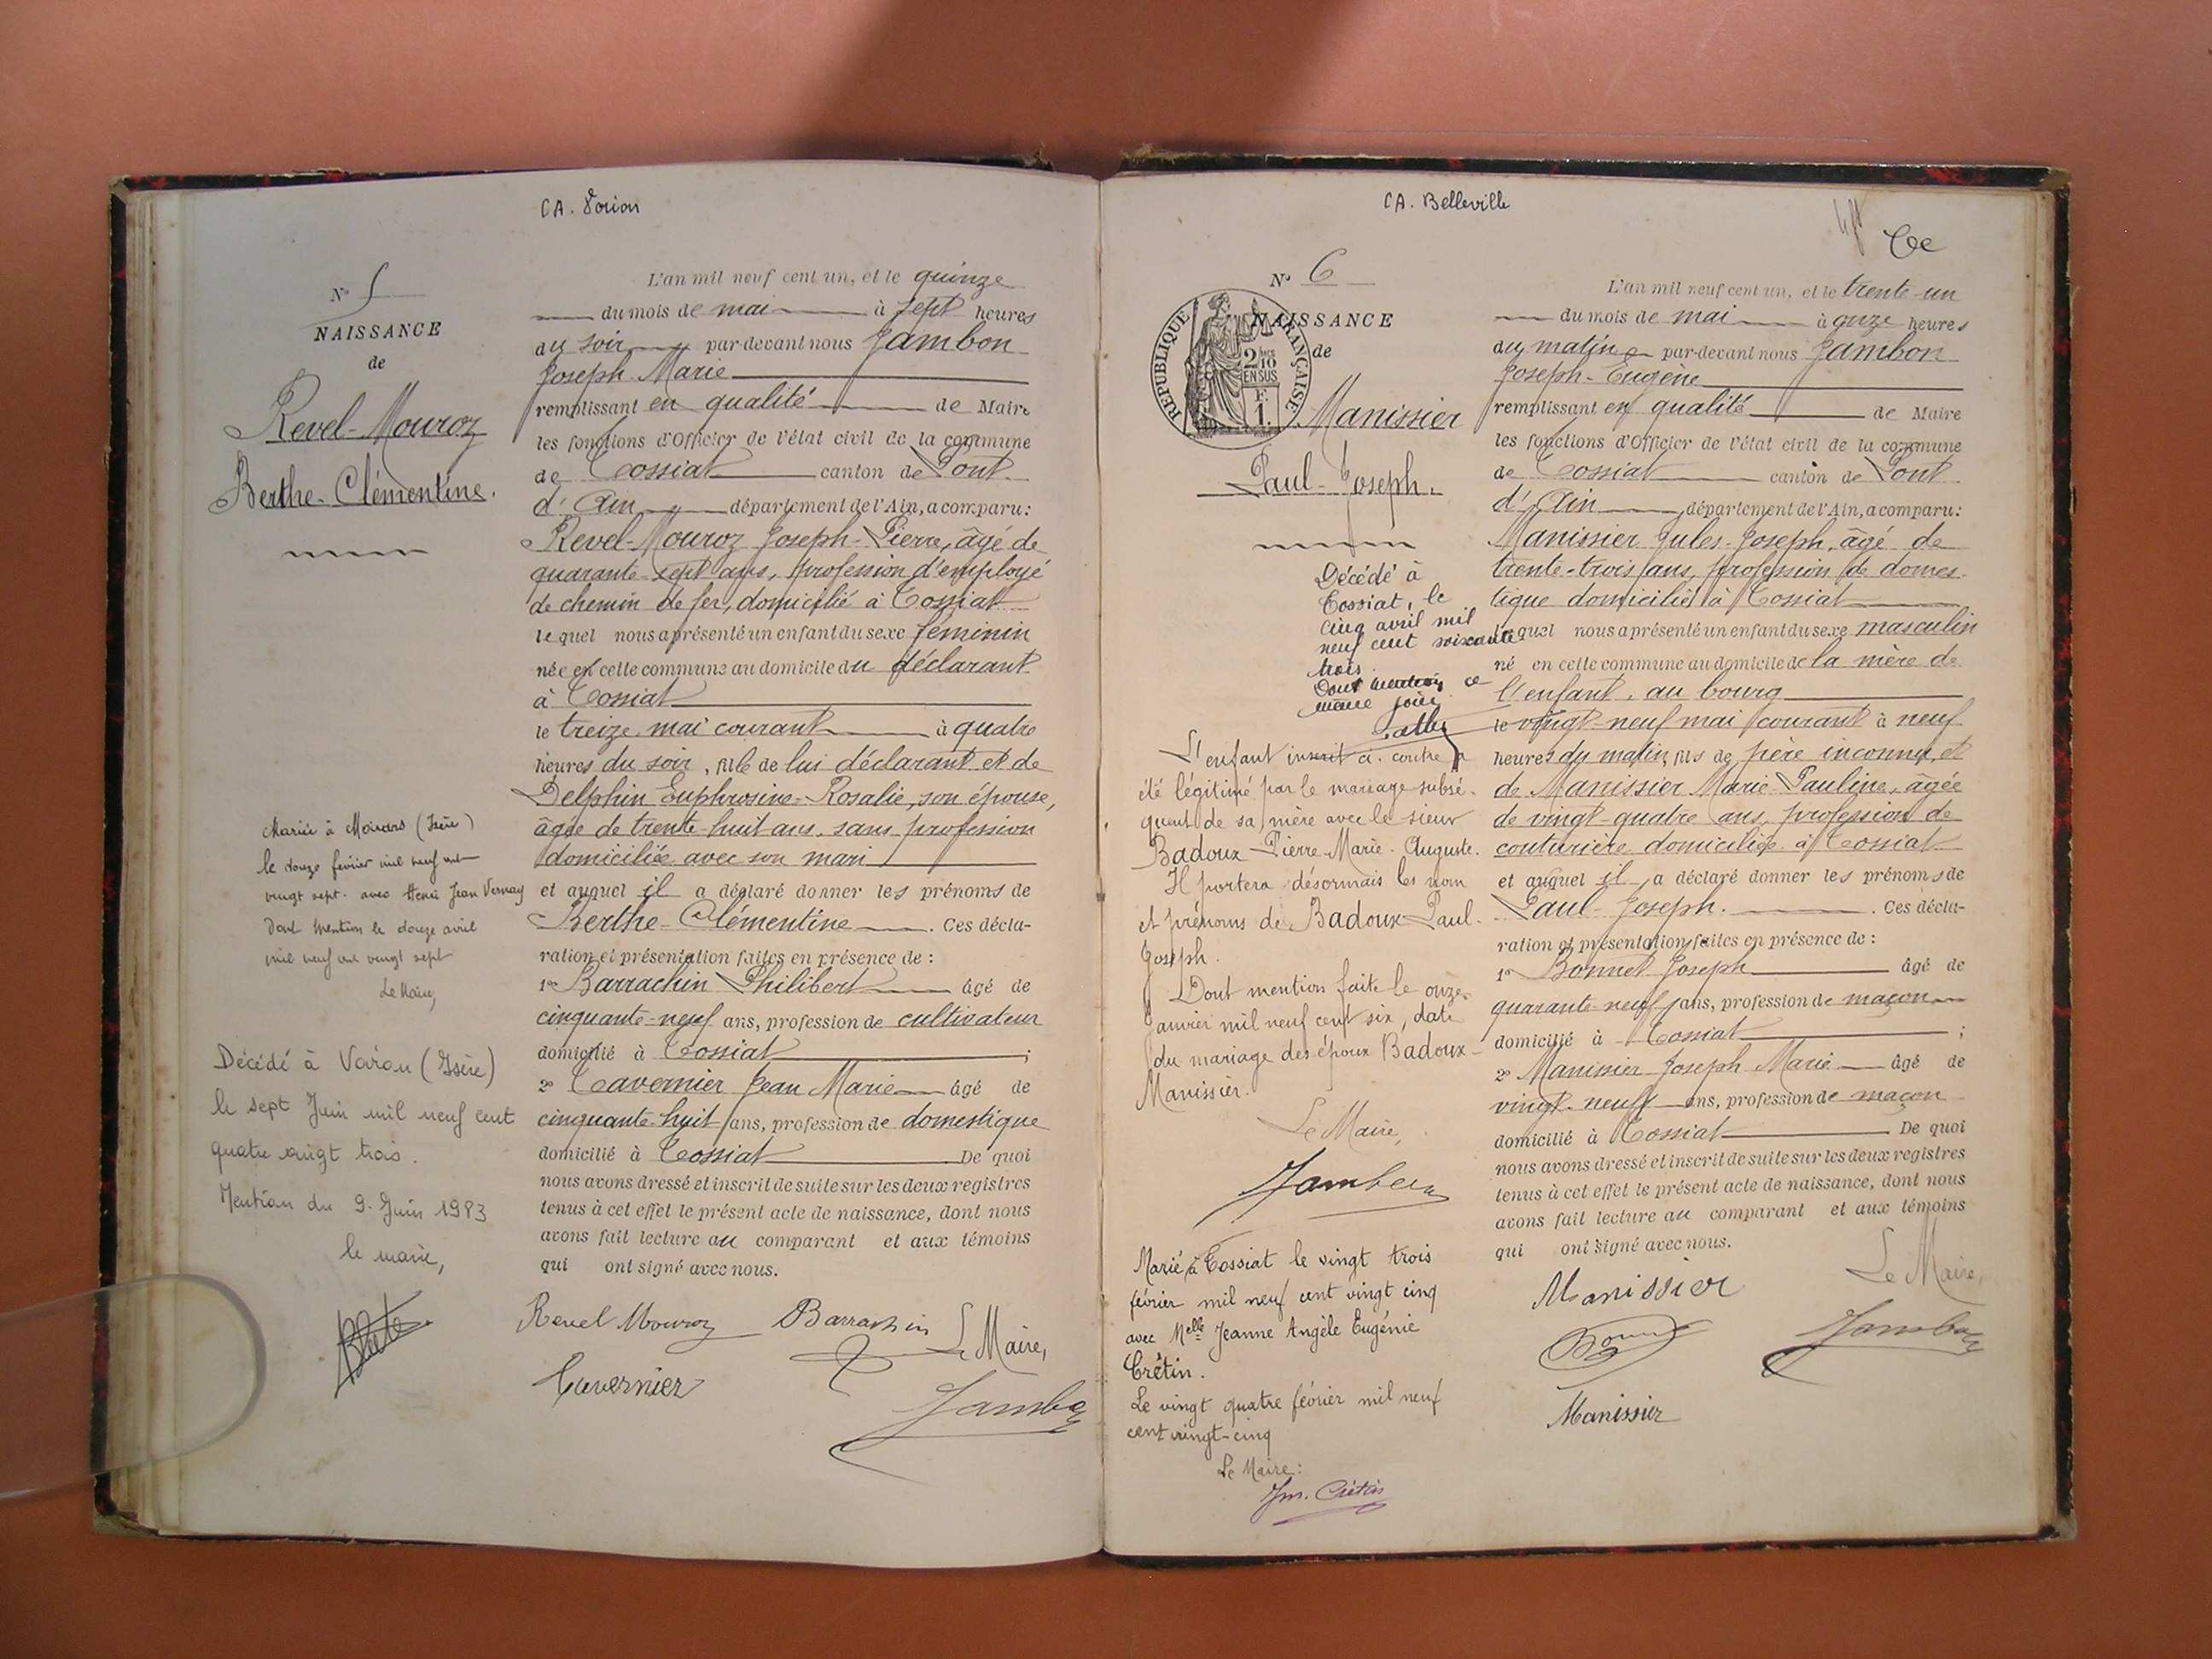 CA. Voiron
N° 5
NAISSANCE
de
Revel-Mouroz
Berthe-Clémentine.
Mariée à Moirans (Isère)
le douze février mil neuf cent
vingt sept. avec Henri Jean Vernay
Dont mention le douze avril
mil neuf cent vingt sept
Le Maire,
Décédé à Voiron (Isère)
le sept Juin mil neuf cent
quatre vingt trois.
Mention du 9 Juin 1983
le maire,
L'an mil neuf cent un, et le quinze
du mois de mai à sept heures
du soir par-devant nous Jambon
Joseph Marie
remplissant en qualité de Maire
les fonctions d'Officier de l'état civil de la commune
de Tossiat canton de Pont
d'Ain département de l'Ain, a comparu :
Revel-Mouroz Joseph-Pierre, âgé de
quarante-sept ans, profession d'employé
de chemin de fer, domicilié à Tossiat
lequel nous a présenté un enfant du sexe féminin
née en cette commune au domicile du déclarant
à Tossiat
le treize mai courant à quatre
heures du soir, fille de lui déclarant et de
Delphin Euphrosine-Rosalie, son épouse,
âgée de trente-huit ans, sans profession
domiciliée avec son mari
et auquel il a déclaré donner les prénoms de
Berthe-Clémentine. Ces décla-
ration et présentation faites en présence de :
1er Barrachin Philibert âgé de
cinquante-neuf ans, profession de cultivateur
domicilié à Tossiat ;
2e Tavernier Jean Marie âgé de
cinquante-huit ans, profession de domestique
domicilié à Tossiat De quoi
nous avons dressé et inscrit de suite sur les deux registres
tenus à cet effet le présent acte de naissance, dont nous
avons fait lecture au comparant et aux témoins
qui ont signé avec nous.
Revel Mouroz Barrachin Le Maire,
Tavernier Jambon
CA. Belleville
N° 6
RÉPUBLIQUE FRANÇAISE
2/10
EN SUS
F.
1.
NAISSANCE
de
Manissier
Paul-Joseph.
Décédé à
Tossiat, le
cinq avril mil
neuf cent soixante
trois.
Dont mention ce
même jour
L'enfant inscrit ci-contre a
été légitimé par le mariage subsé-
quent de sa mère avec le sieur
Badoux Pierre-Marie-Auguste.
Il portera désormais les nom
et prénoms de Badoux Paul-
Joseph.
Dont mention faite le onze
Janvier mil neuf cent six, date
du mariage des époux Badoux-
Manissier.
Le Maire,
Jambon
Marié à Tossiat le vingt trois
février mil neuf cent vingt cinq
avec Melle Jeanne Angèle Eugénie
Crétin.
Le vingt quatre février mil neuf
cent vingt-cinq
Le Maire :
Jm. Crétin
L'an mil neuf cent un, et le trente-un
du mois de mai à onze heures
du matin par-devant nous Jambon
Joseph-Eugène
remplissant en qualité de Maire
les fonctions d'Officier de l'état civil de la commune
de Tossiat canton de Pont
d'Ain département de l'Ain, a comparu :
Manissier Jules-Joseph, âgé de
trente-trois ans, profession de domes-
tique domicilié à Tossiat
lequel nous a présenté un enfant du sexe masculin
né en cette commune au domicile de la mère de
l'enfant, au bourg
le vingt-neuf mai courant à neuf
heures du matin, fils de père inconnu, et
de Manissier Marie-Pauline, âgée
de vingt-quatre ans, profession de
couturière domiciliée à Tossiat
et auquel il a déclaré donner les prénoms de
Paul-Joseph. Ces décla-
ration et présentation faites en présence de :
1er Bonnet Joseph âgé de
quarante-neuf ans, profession de maçon
domicilié à Tossiat ;
2e Manissier Joseph Marie âgé de
vingt-neuf ans, profession de maçon
domicilié à Tossiat De quoi
nous avons dressé et inscrit de suite sur les deux registres
tenus à cet effet le présent acte de naissance, dont nous
avons fait lecture au comparant et aux témoins
qui ont signé avec nous.
Manissier Le Maire,
Jambon
Manissier